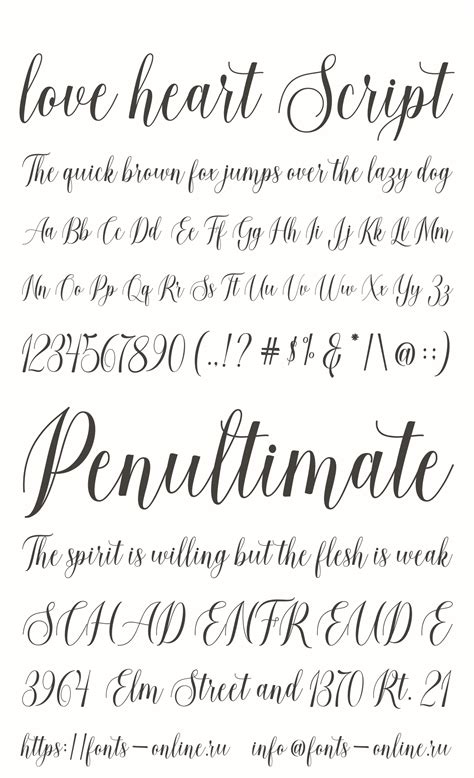 love heart Script
The quick brown fox jumps over the lazy dog
Aa Bb Cc Dd Ee Ff Gg Hh Ii Jj Kk Ll Mm
Nn Oo Pp Qq Rr Ss Tt Uu Vv Ww Xx Yy Zz
1234567890 (..!? # $% & * /|\ @ :;)
Penultimate
The spirit is willing but the flesh is weak
SCHADENFREUDE
3964 Elm Street and 1370 Rt. 21
https://fonts-online.ru info@fonts-online.ru